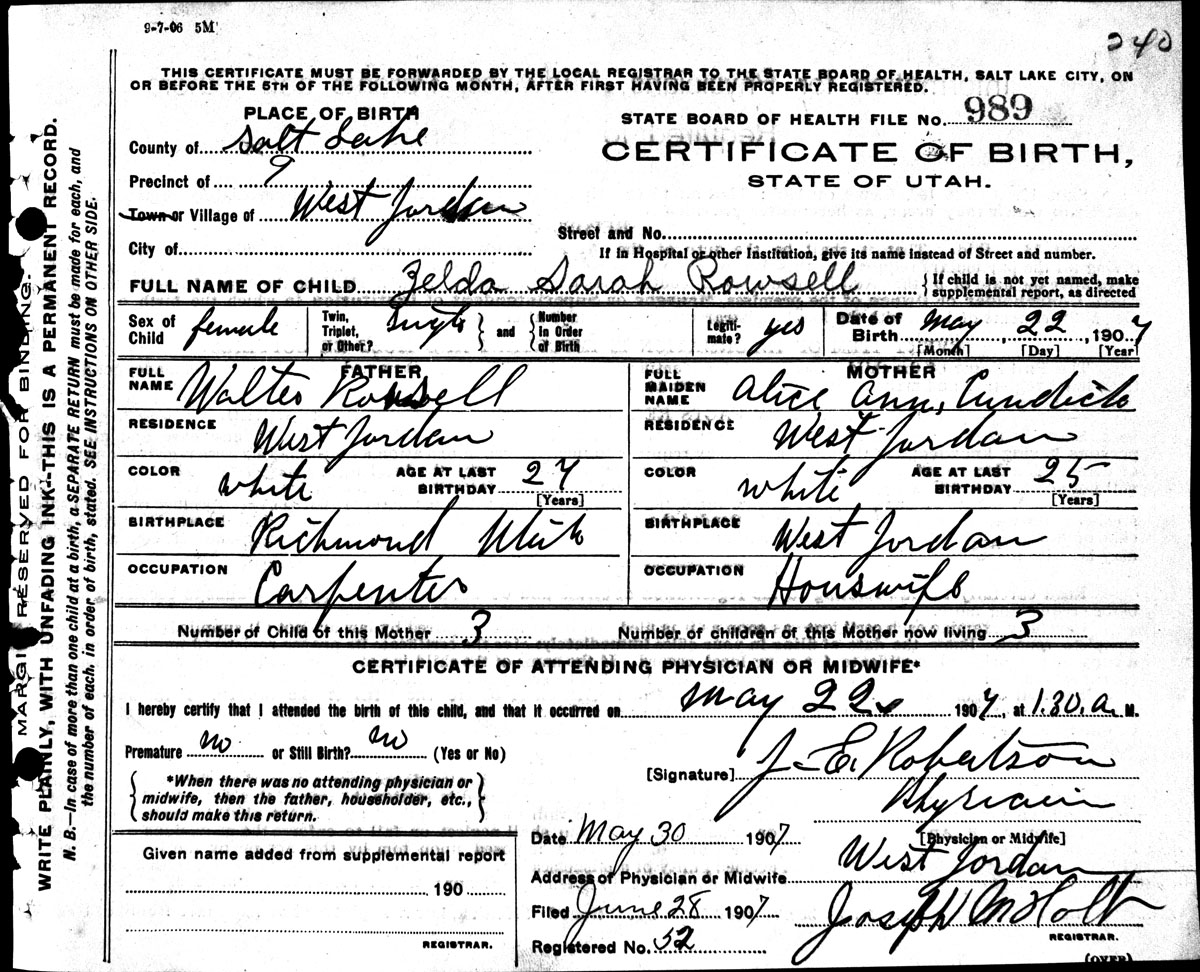 9-7-06 5M
240
THIS CERTIFICATE MUST BE FORWARDED BY THE LOCAL REGISTRAR TO THE STATE BOARD OF HEALTH, SALT LAKE CITY, ON
OR BEFORE THE 5TH OF THE FOLLOWING MONTH, AFTER FIRST HAVING BEEN PROPERLY REGISTERED.
PLACE OF BIRTH
County of Salt Lake
Precinct of 9
Town or Village of West Jordan
City of
STATE BOARD OF HEALTH FILE No. 989
CERTIFICATE OF BIRTH,
STATE OF UTAH.
Street and No.
If in Hospital or other Institution, give its name instead of Street and number.
FULL NAME OF CHILD Zelda Sarah Rowsell { If child is not yet named, make
supplemental report, as directed
Sex of Child female
Twin, Triplet, or Other? Single } and { Number in Order of Birth
Legiti-mate? yes
Date of Birth May 22, 1907
[Month] [Day] [Year]
FATHER
FULL NAME Walter Rowsell
RESIDENCE West Jordan
COLOR white AGE AT LAST BIRTHDAY 27
[Years]
BIRTHPLACE Richmond Utah
OCCUPATION Carpenter
MOTHER
FULL MAIDEN NAME Alice Ann, Cundick
RESIDENCE West Jordan
COLOR white AGE AT LAST BIRTHDAY 25
[Years]
BIRTHPLACE West Jordan
OCCUPATION Houswife
Number of Child of this Mother 3 Number of children of this Mother now living 3
CERTIFICATE OF ATTENDING PHYSICIAN OR MIDWIFE*
I hereby certify that I attended the birth of this child, and that it occurred on May 22 1907, at 1.30. a. M.
Premature no or Still Birth? no (Yes or No)
{ *When there was no attending physician or
midwife, then the father, householder, etc.,
should make this return. }
[Signature] J. E. Robertson
Physicain
[Physician or Midwife]
Date May 30 1907
Address of Physician or Midwife West Jordan
Filed June 28 1907 Joseph M Holt
REGISTRAR.
Registered No. 52
(OVER)
Given name added from supplemental report
190
REGISTRAR.
MARGIN RESERVED FOR BINDING.
WRITE PLAINLY, WITH UNFADING INK--THIS IS A PERMANENT RECORD.
N. B.—In case of more than one child at a birth, a SEPARATE RETURN must be made for each, and
the number of each, in order of birth, stated. SEE INSTRUCTIONS ON OTHER SIDE.